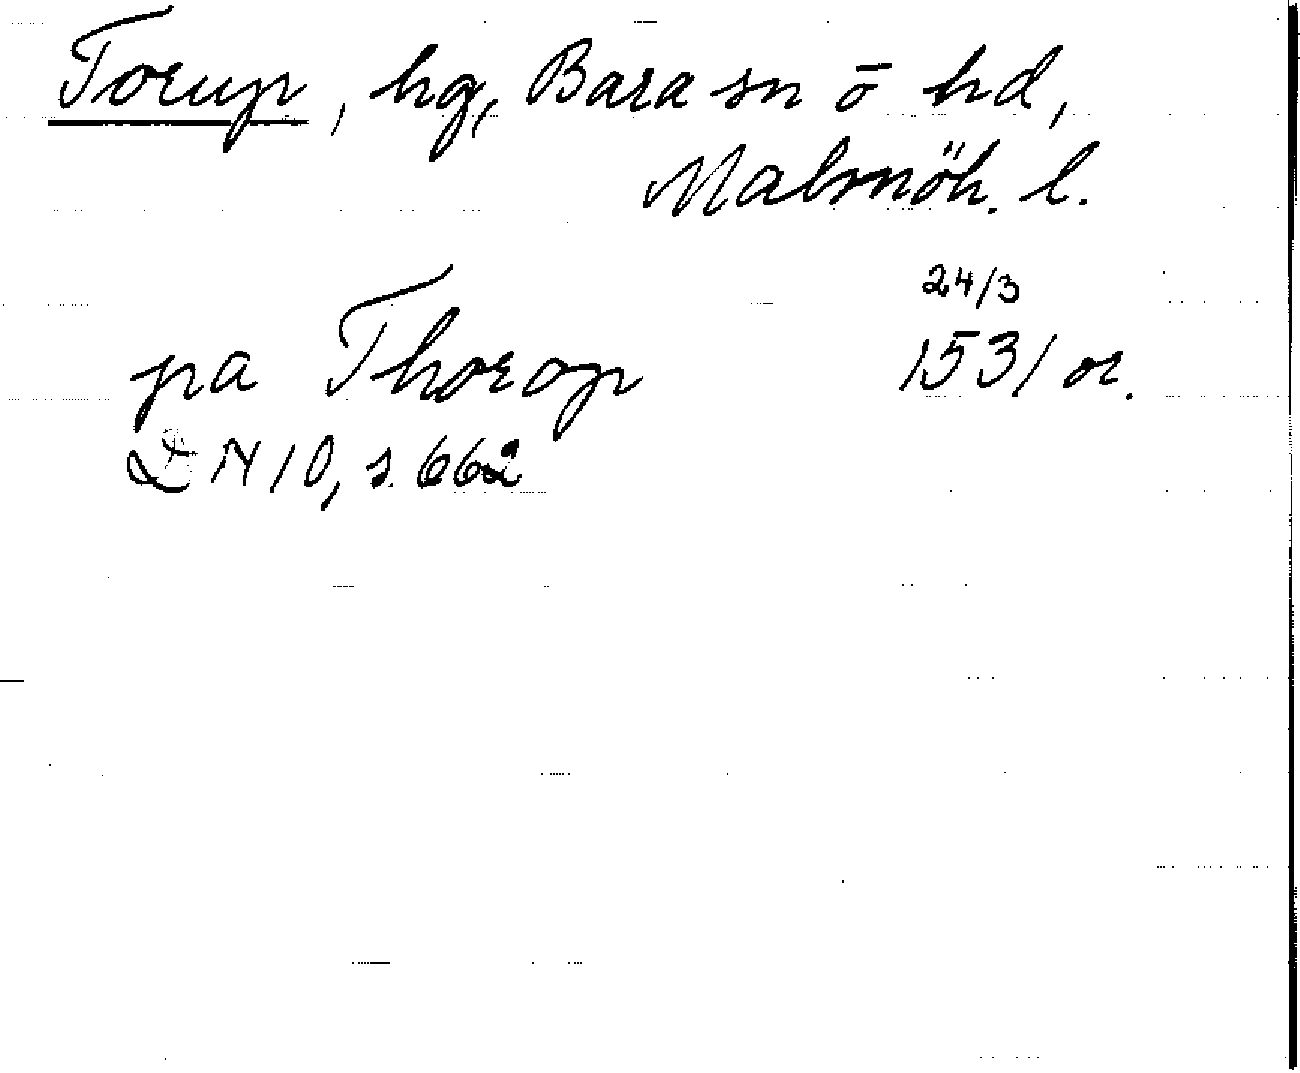 Torup, hg, Bara sn o hd,
Malmöh. l.
24/3
pa Thorop 1531 or.
DN 10, s. 662